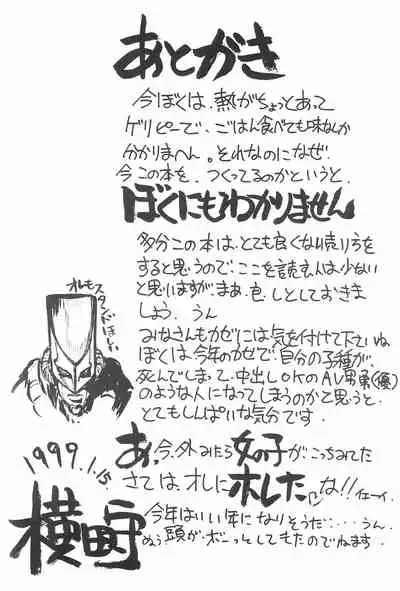 あとがき
今ぼくは、熱がちょっとあって
ゲリピーで、ごはん食べても味なんか
分かりまへん。それなのになぜ
今この本を、つくってるのかというと、
ぼくにもわかりません
多分この本は、とても良くない売りうを
すると思うので、ここを読む人は少ない
と思いますが、まあ、良しとしておきま
しょう。うん
みなさんもカゼには気を付けて下さいね
ぼくは、今年のカゼで、自分の子種が
死んでしまって、中出しOKのAV男勇(優)
のような人になってしまうのかと思うと、
とてもしんぱいな気分です。
オレもスタンドほしい
あ、今、外みたら女の子がこっちみてた
さては、オレにホレたな!!イェーイ
今年はいい年になりそうだ・・・・うん
ぬぅ頭がボーっとしてきたのでねます。
1999.1.15.
横田守